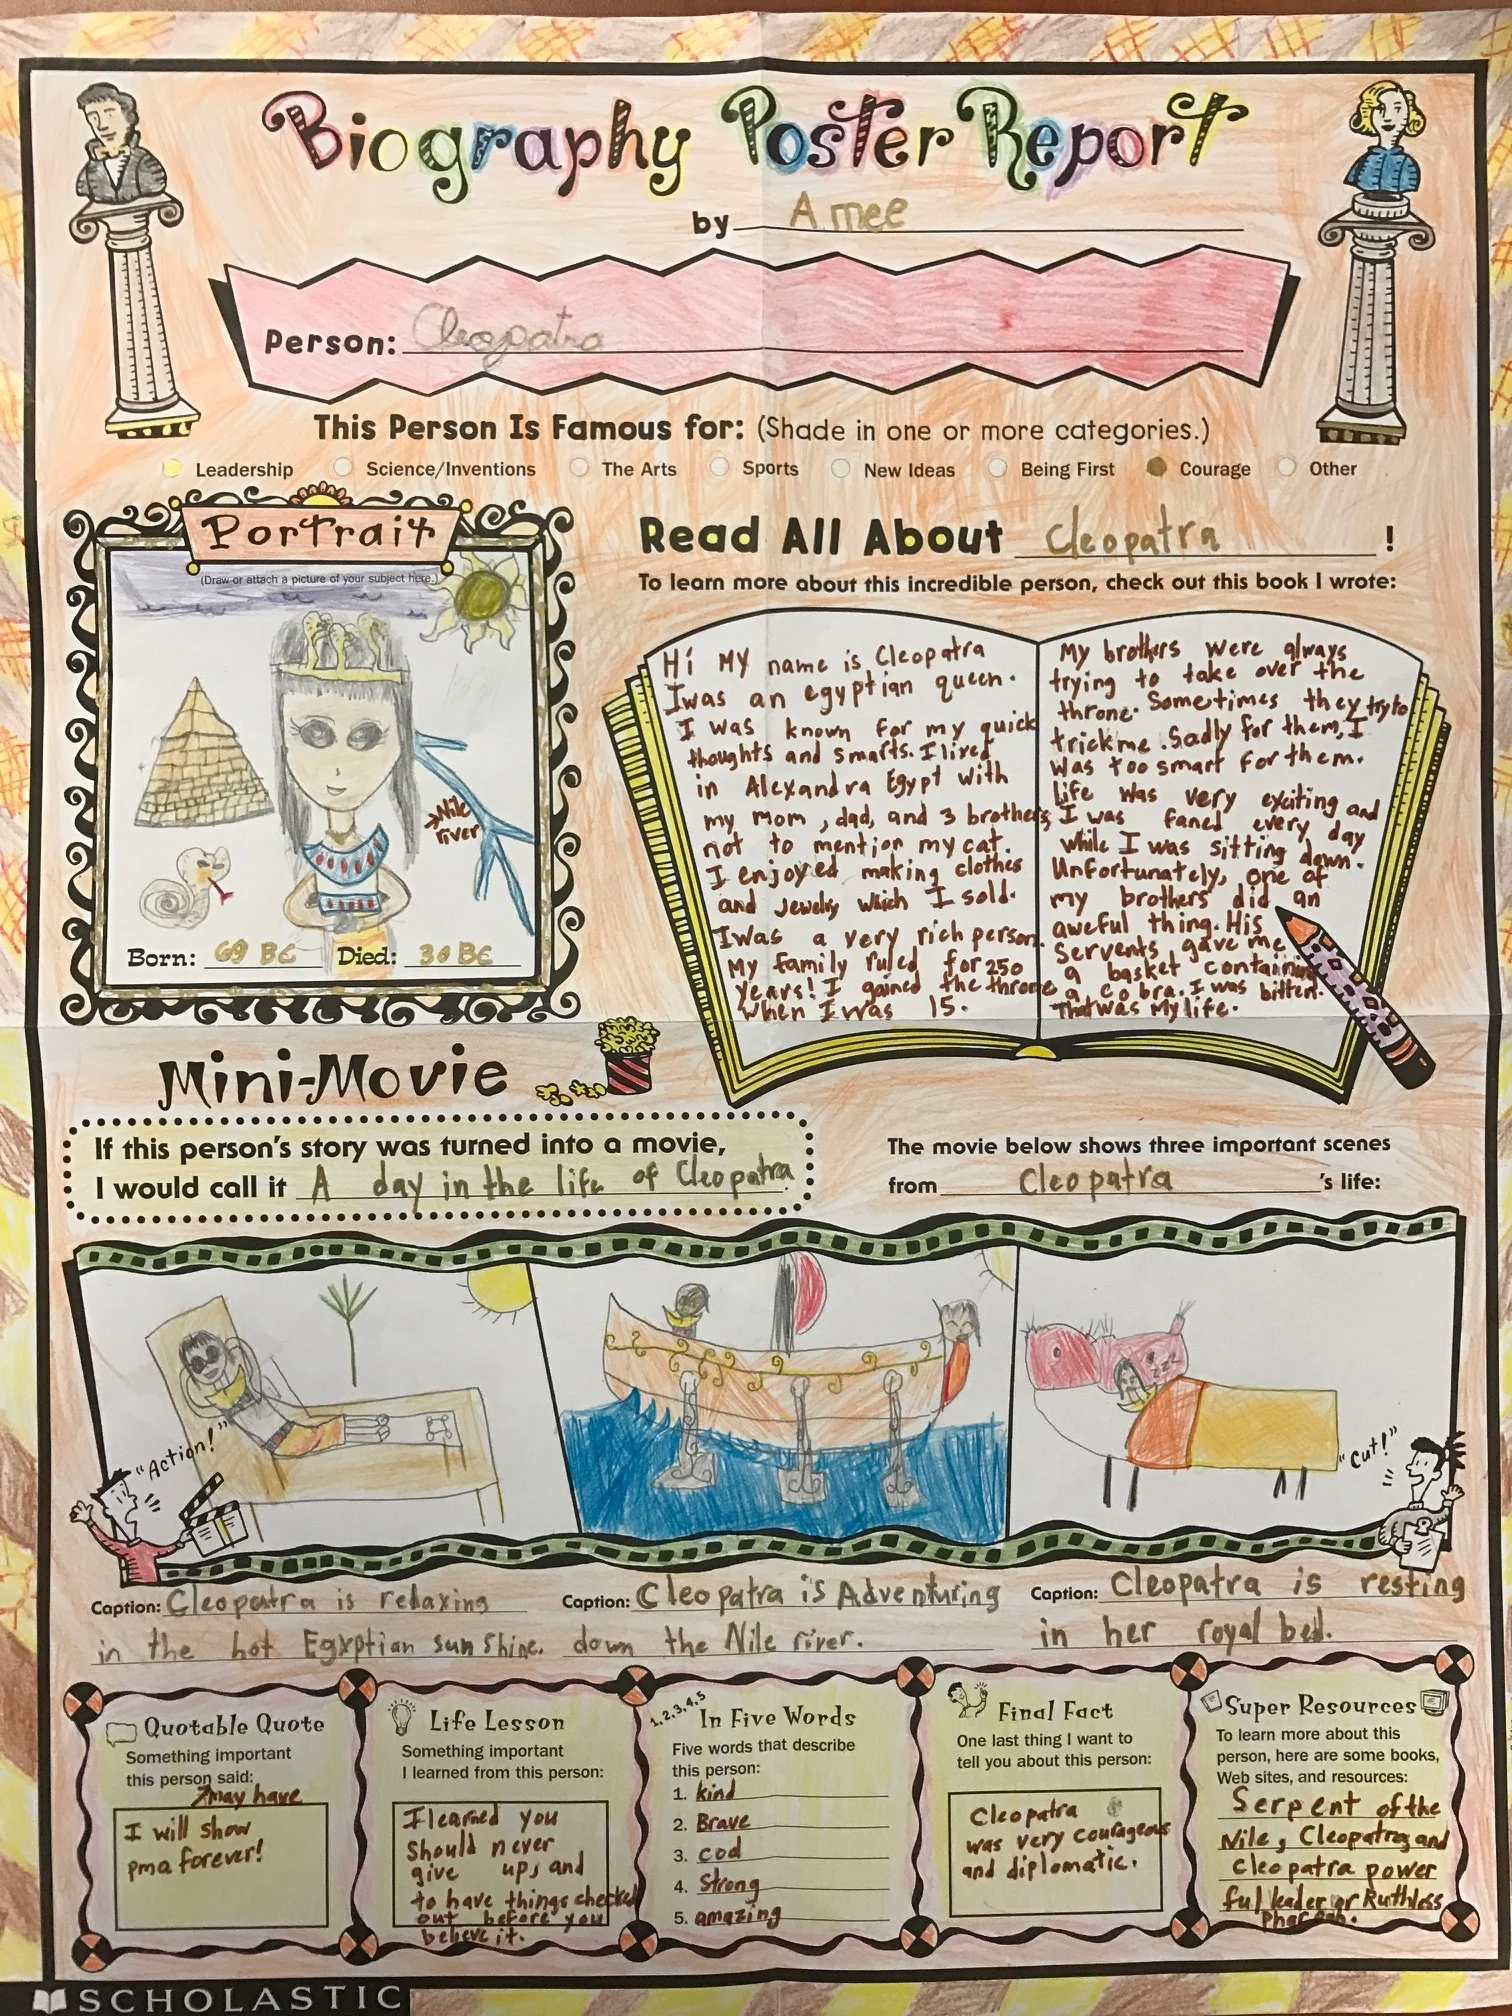 Biography Poster Report
by Amee
Person: Cleopatra
This Person Is Famous for: (Shade in one or more categories.)
Leadership Science/Inventions The Arts Sports New Ideas Being First Courage Other
Portrait
(Draw or attach a picture of your subject here.)
Nile
river
Born: 69 BC Died: 30 BC
Read All About Cleopatra !
To learn more about this incredible person, check out this book I wrote:
Hi My name is Cleopatra
I was an egyptian queen.
I was known for my quick
thoughts and smarts. I lived
in Alexandra Egypt with
my mom, dad, and 3 brothers,
not to mention my cat.
I enjoyed making clothes
and jewelry which I sold.
I was a very rich person.
My family ruled for 250
years! I gained the throne
when I was 15.
My brothers were always
trying to take over the
throne. Sometimes they try to
trick me. Sadly for them, I
was too smart for them.
life was very exciting and
I was faned every day
while I was sitting down.
Unfortunately, one of
my brothers did an
aweful thing. His
servents gave me
a basket containing
a cobra. I was bitten.
That was My life.
Mini-Movie
If this person's story was turned into a movie,
I would call it A day in the life of Cleopatra.
The movie below shows three important scenes
from Cleopatra 's life:
"Action!"
zzz
"Cut!"
Caption: Cleopatra is relaxing
in the hot Egyptian sunshine.
Caption: Cleopatra is Adventuring
down the Nile river.
Caption: Cleopatra is resting
in her royal bed.
Quotable Quote
Something important
this person said:
may have
I will show
pma forever!
Life Lesson
Something important
I learned from this person:
I learned you
should never
give up, and
to have things checked
out before you
believe it.
1,2,3,4,5
In Five Words
Five words that describe
this person:
1. kind
2. Brave
3. cod
4. Strong
5. amazing
Final Fact
One last thing I want to
tell you about this person:
Cleopatra
was very courageous
and diplomatic.
Super Resources
To learn more about this
person, here are some books,
Web sites, and resources:
Serpent of the
Nile, Cleopatra, and
Cleopatra power
ful leader or Ruthless
pharoah.
SCHOLASTIC